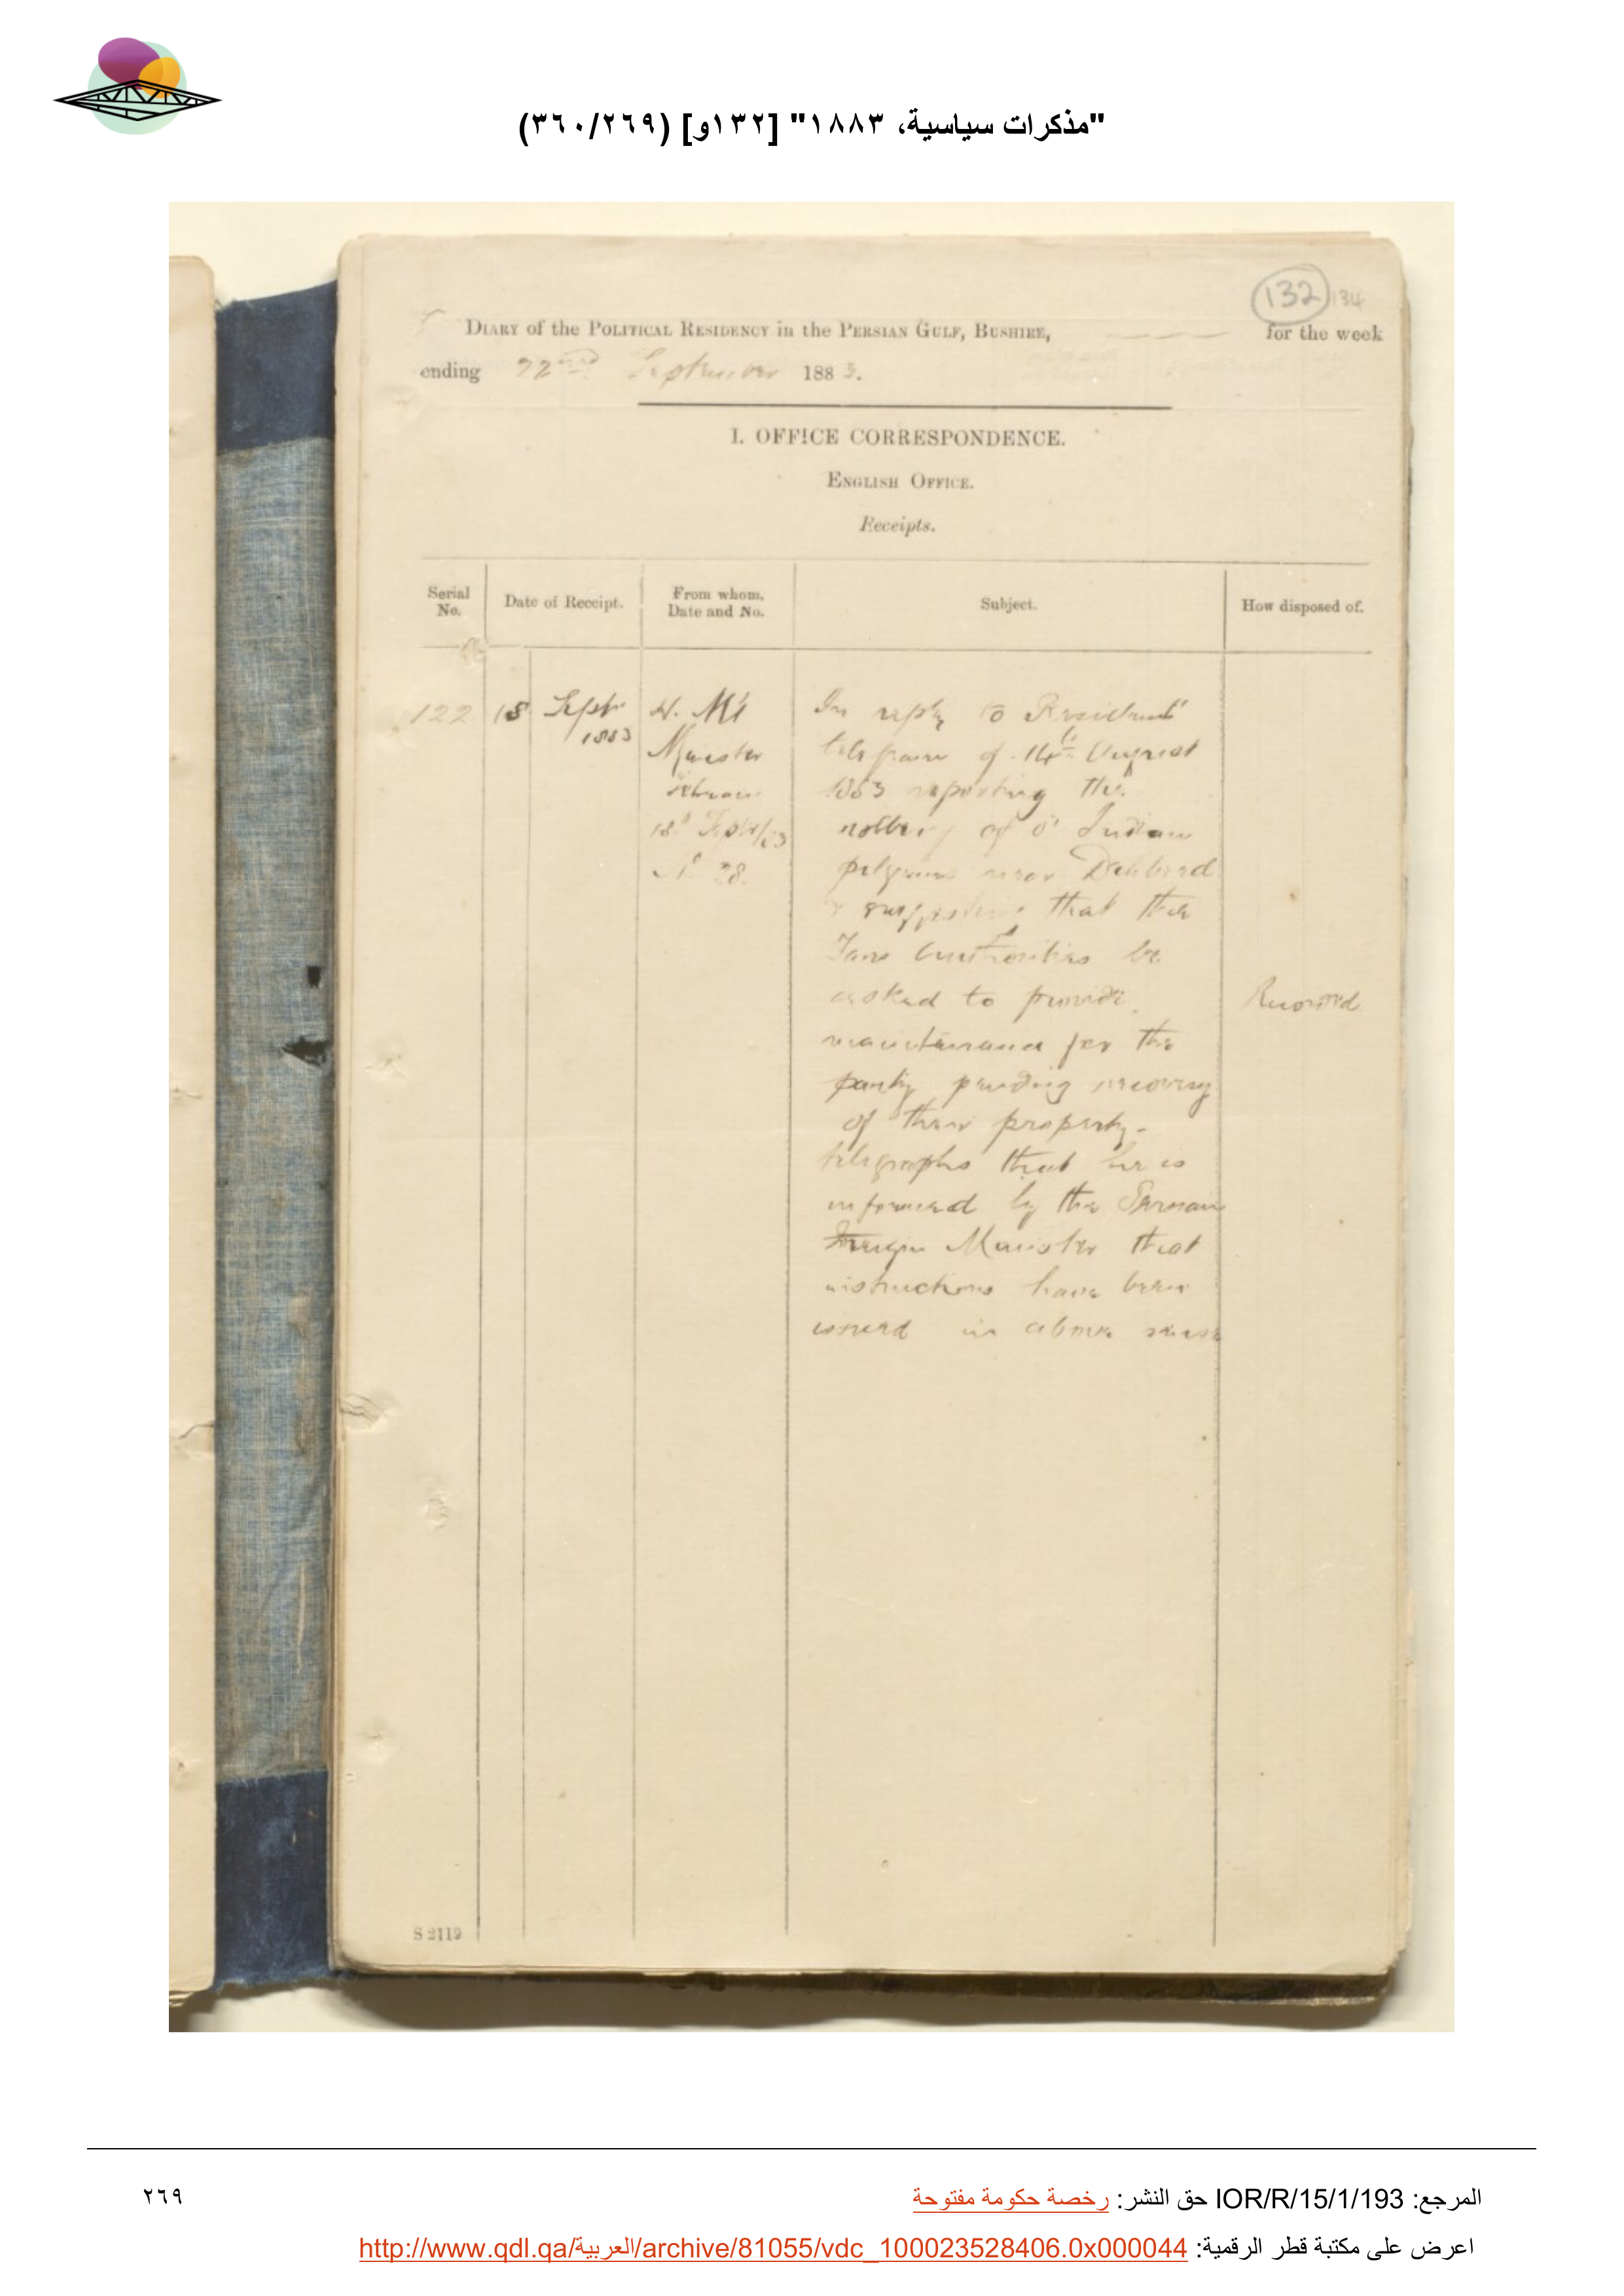 "مذكرات سياسية، ١٨٨٣" [١٣٢و] (٣٦٠/٢٦٩)
132 134
DIARY of the POLITICAL RESIDENCY in the PERSIAN GULF, BUSHIRE, for the week
ending 22nd September 1883.
I. OFFICE CORRESPONDENCE.
ENGLISH OFFICE.
Receipts.
Serial No. Date of Receipt. From whom, Date and No. Subject. How disposed of.
122 18 Septr 1883 H. M's Minister Tehran 18th Septr/83 No 28.
In reply to Residents
telegram of 14th August
1883 reporting the
robbery of Indian
pilgrims near Dehbeed
& suggesting that the
Fars authorities be
asked to provide
maintenance for the
party pending recovery
of their property-
telegraphs that he is
informed by the Persian
Foreign Minister that
instructions have been
issued in above sense
Recorded.
S 2112
المرجع: IOR/R/15/1/193 حق النشر: رخصة حكومة مفتوحة
٢٦٩
اعرض على مكتبة قطر الرقمية: http://www.qdl.qa/العربية/archive/81055/vdc_100023528406.0x000044